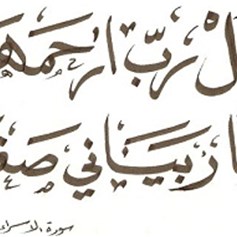 ل رَبِّ ارْحَمهَـ
ا رَبَّيَاني صَغـ
سورة الاسرا